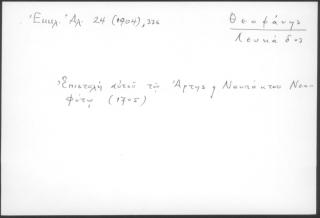 Ἐκκλ. Ἀλ. 24 (1904), 336
Θεοφάνης
Λευκάδος
Ἐπιστολὴ αὐτοῦ τῷ Ἄρτης ϗ Ναυπάκτου Νεο-
φύτῳ (1705)